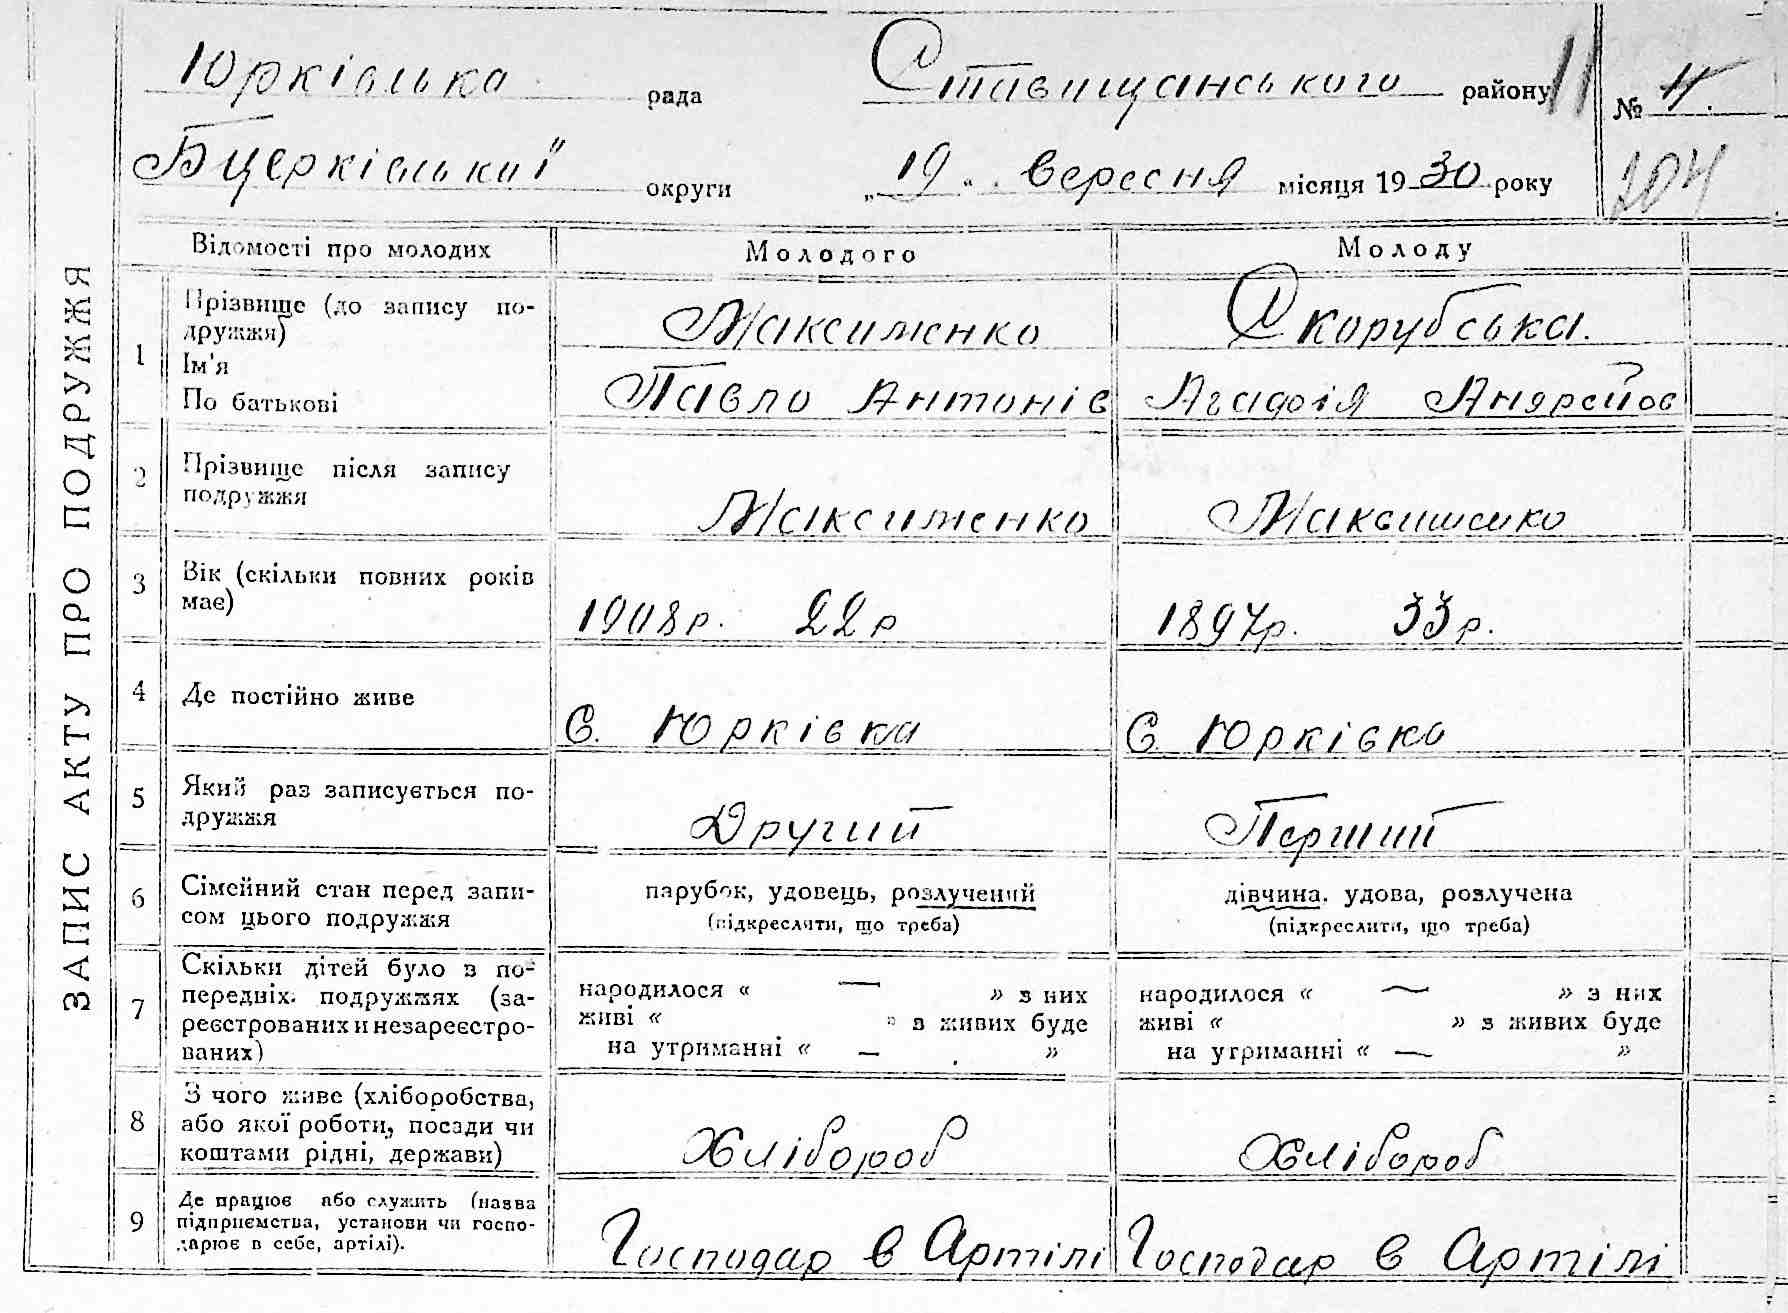 ЗАПИС АКТУ ПРО ПОДРУЖЖЯ
Юрківська рада Ставищанського району 11 № 11.
Бцерківської округи „19“ вересня місяця 1930 року 204
Відомості про молодих Молодого Молоду
1 Прізвище (до запису по-
дружжя) Максименко Скорубська.
Ім'я
По батькові Павло Антонів Агафія Андрейов
2 Прізвище після запису
подружжя Максименко Максименко
3 Вік (скільки повних років
має) 1908р. 22р 1897р. 33р.
4 Де постійно живе С. Юрківка С Юрківка
5 Який раз записується по-
дружжя Другий Перший
6 Сімейний стан перед запи- парубок, удовець, розлучений дівчина, удова, розлучена
сом цього подружжя (підкреслити, що треба) (підкреслити, що треба)
7 Скільки дітей було в по-
передніх подружжях (за-
реєстрованих и незареєстро-
ваних)
народилося « — » з них
живі « » з живих буде
на утриманні « — »
народилося « — » з них
живі « » з живих буде
на утриманні « — »
8 З чого живе (хліборобства,
або якої роботи, посади чи
коштами рідні, держави) Хлібороб Хлібороб
9 Де працює або служить (назва
підприємства, установи чи госпо-
дарює в себе, артілі). Господар в Артілі Господар в Артілі